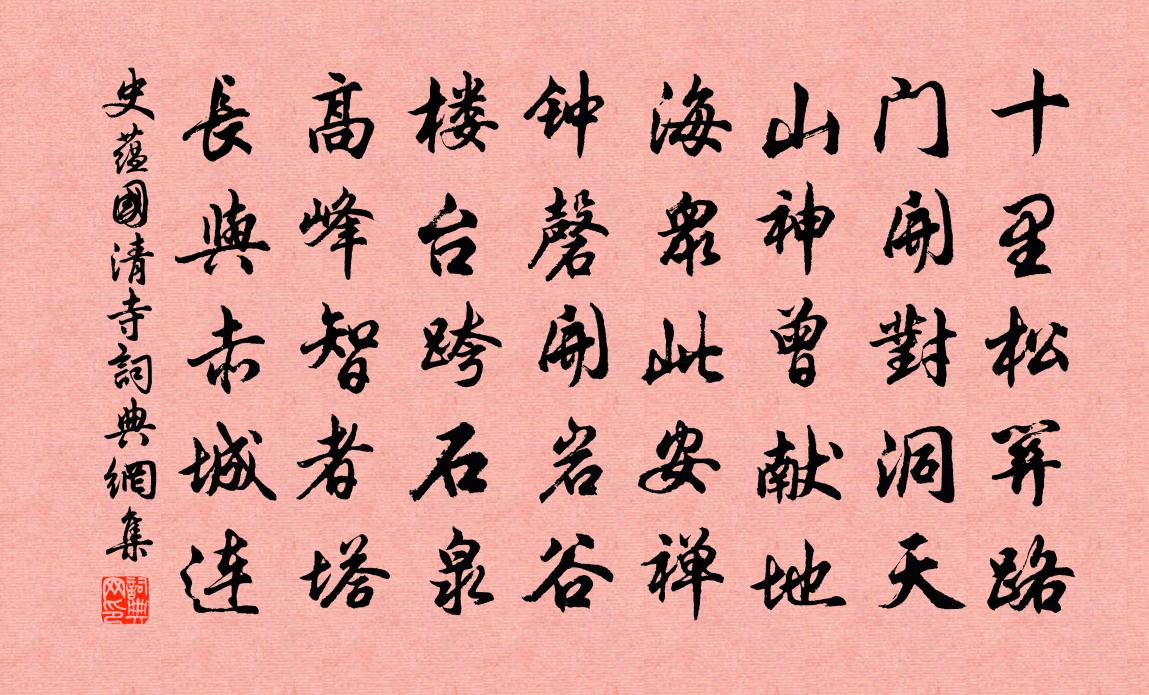 十里松关路
门開對洞天
山神曾献地
海衆此安禅
钟磬開岩谷
楼台跨石泉
高峰智者塔
長與赤城连
史蕴國清寺詞典網集
詞典网印